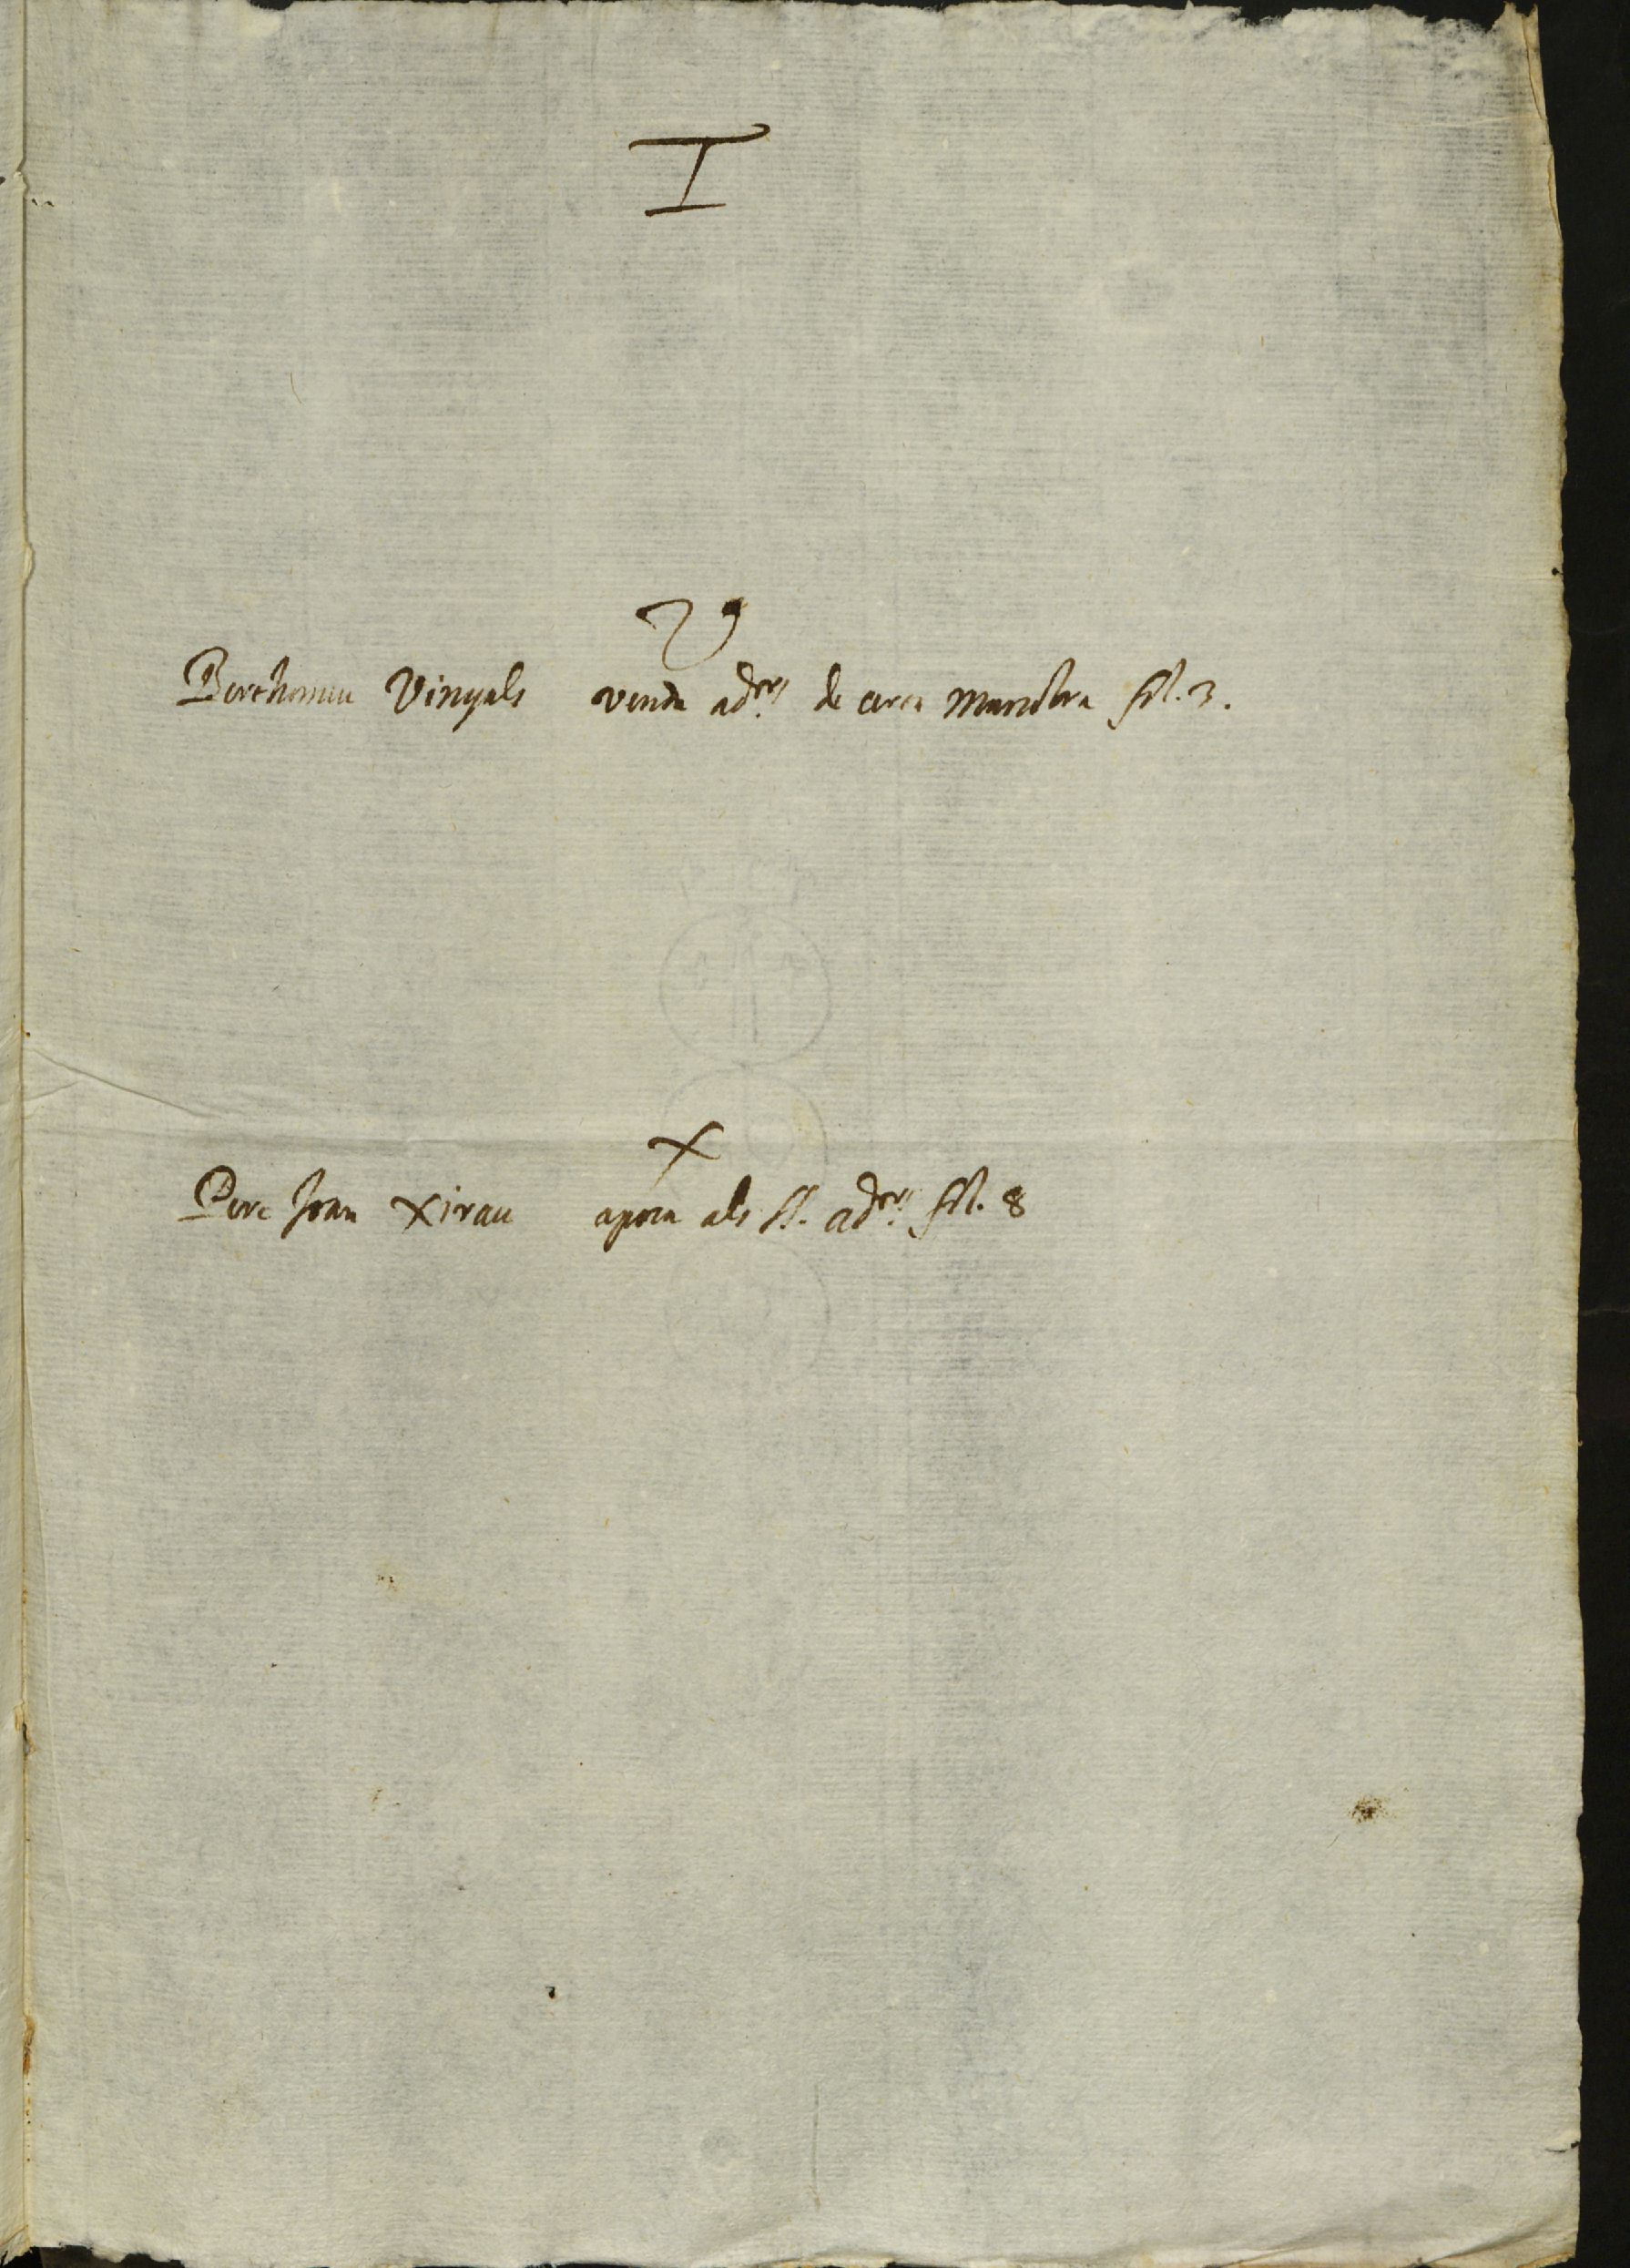 T
V
Berthomeu Vinyals venda ad.rs de certa manobra fol. 3.
X
Pere Joan Xirau apoca als SS. ad.rs fol. 8